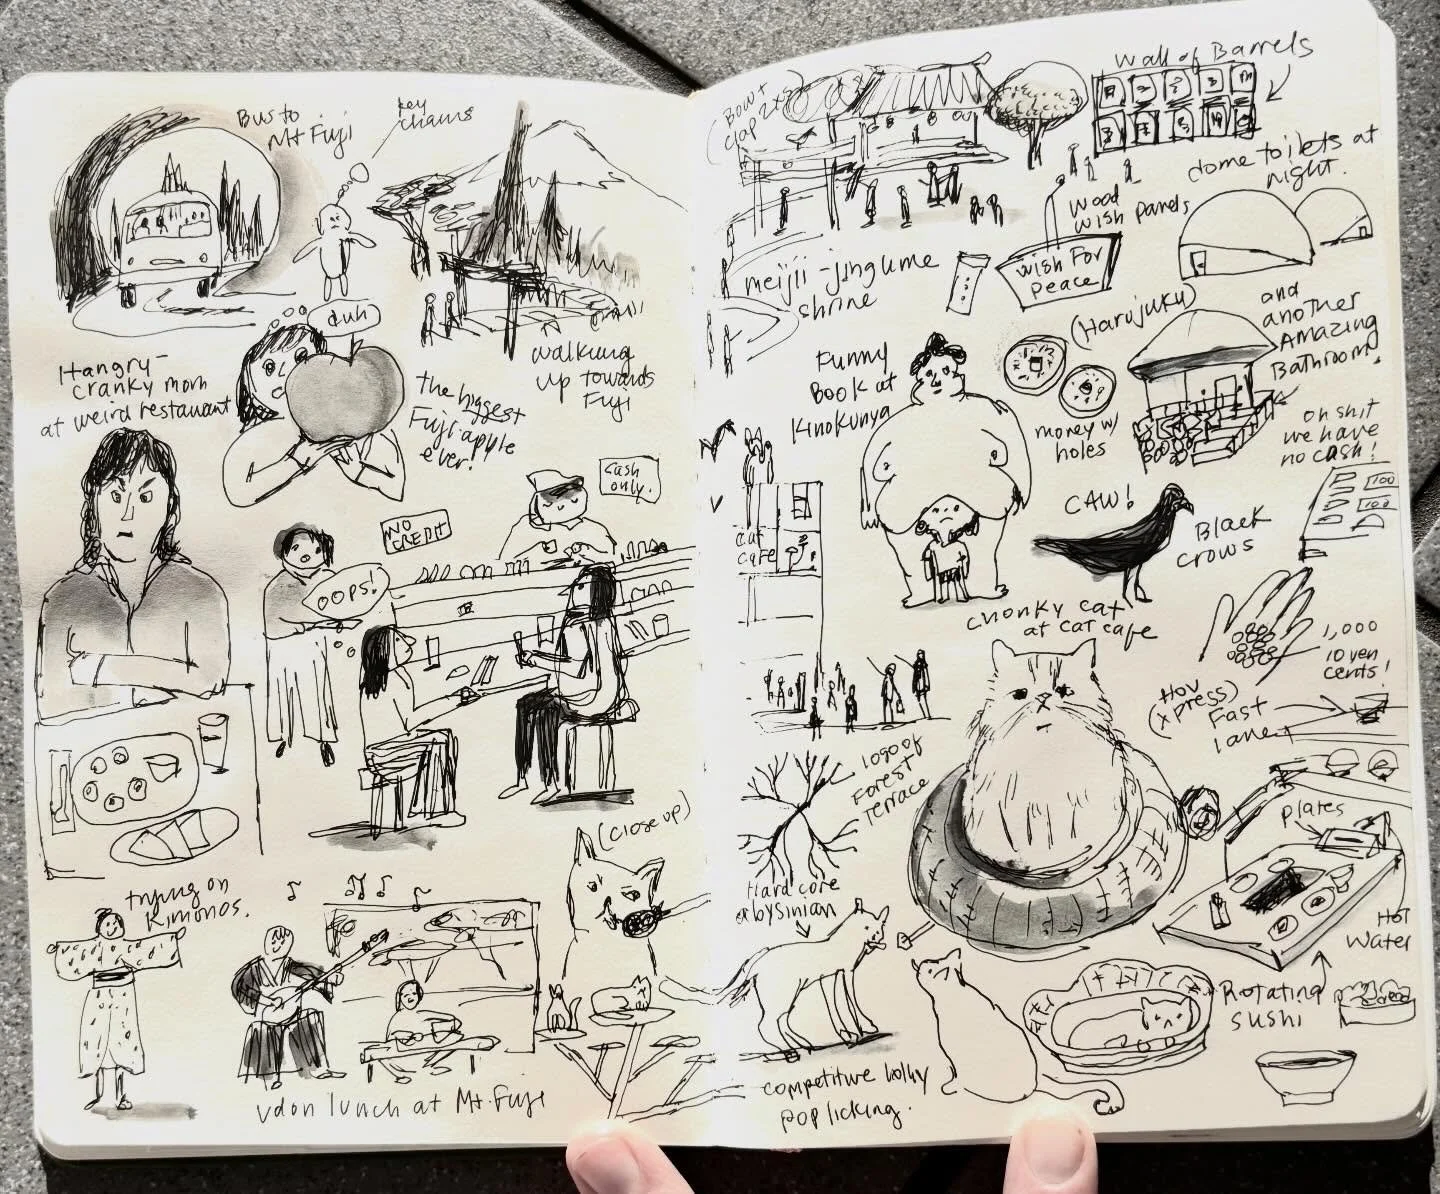 Bus to
Mt Fuji
key
chains
duh
Hangry-
cranky mom
at weird restaurant
the biggest
Fuji apple
ever!
walking
up towards
Fuji
cash
only.
NO
CREDIT
OOPS!
trying on
kimonos.
(close up)
udon lunch at Mt. Fuji
(Bow +
clap 2x)
Wall of Barrels
dome toilets at
night.
wood
wish panels
wish For
Peace
meijii-jingume
shrine
(Harujuku)
and
another
Amazing
Bathroom.
Funny
Book at
Kinokunya
money w/
holes
oh shit
we have
no cash!
100
100
CAW!
Black
crows
cat
cafe
chonky cat
at cat cafe
1,000
10 yen
cents!
Fast
lane
logo of
Forest
Terrace
plates
Hard core
abysinian
Hot
Water
Rotating
sushi
competitive lolly
pop licking.